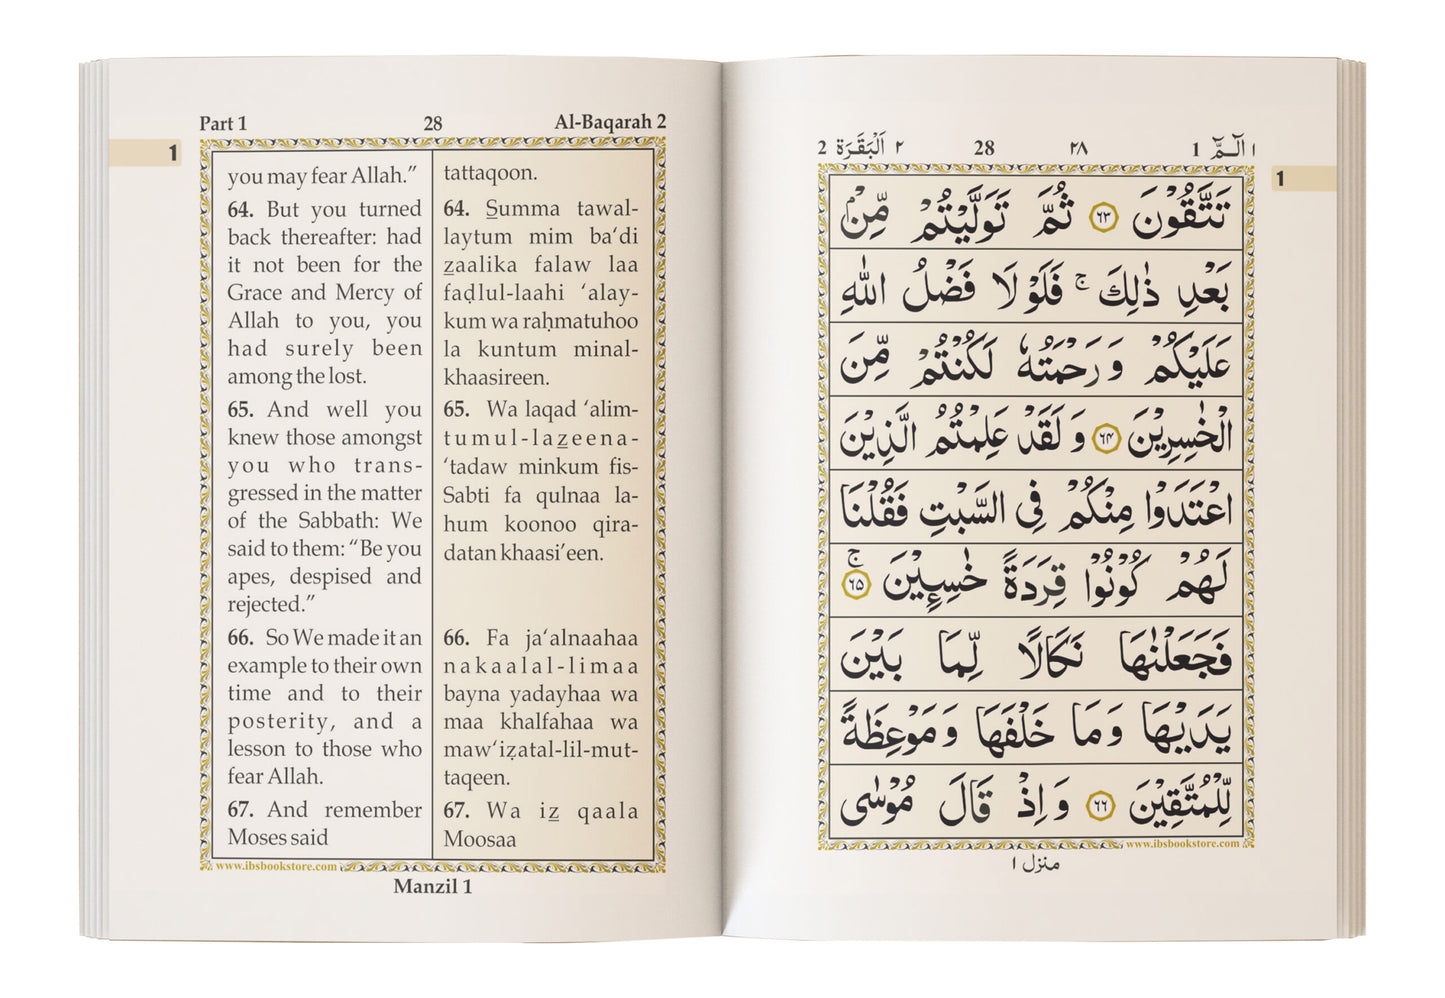 Part 1 28 Al-Baqarah 2
1
you may fear Allah.”
64. But you turned
back thereafter: had
it not been for the
Grace and Mercy of
Allah to you, you
had surely been
among the lost.
65. And well you
knew those amongst
you who trans-
gressed in the matter
of the Sabbath: We
said to them: “Be you
apes, despised and
rejected.”
66. So We made it an
example to their own
time and to their
posterity, and a
lesson to those who
fear Allah.
67. And remember
Moses said
tattaqoon.
64. S̲umma tawal-
laytum mim ba‘di
z̲aalika falaw laa
faḍlul-laahi ‘alay-
kum wa raḥmatuhoo
la kuntum minal-
khaasireen.
65. Wa laqad ‘alim-
tumul-laz̲eena-
‘tadaw minkum fis-
Sabti fa qulnaa la-
hum koonoo qira-
datan khaasi’een.
66. Fa ja‘alnaahaa
nakaalal-limaa
bayna yadayhaa wa
maa khalfahaa wa
maw‘iẓatal-lil-mut-
taqeen.
67. Wa iz̲ qaala
Moosaa
www.ibsbookstore.com
Manzil 1
2 اَلْبَقَرَة ٢ 28 ٢٨ 1 الٓمّٓ ١
1
تَتَّقُوْنَ ٦٣ ثُمَّ تَوَلَّيْتُمْ مِّنْۢ
بَعْدِ ذٰلِكَ ۚ فَلَوْلَا فَضْلُ اللّٰهِ
عَلَيْكُمْ وَرَحْمَتُهٗ لَكُنْتُمْ مِّنَ
الْخٰسِرِيْنَ ٦٤ وَلَقَدْ عَلِمْتُمُ الَّذِيْنَ
اعْتَدَوْا مِنْكُمْ فِى السَّبْتِ فَقُلْنَا
لَهُمْ كُوْنُوْا قِرَدَةً خٰسِـِٕيْنَ ۚ ٦٥
فَجَعَلْنٰهَا نَكَالًا لِّمَا بَيْنَ
يَدَيْهَا وَمَا خَلْفَهَا وَمَوْعِظَةً
لِّلْمُتَّقِيْنَ ٦٦ وَاِذْ قَالَ مُوْسٰى
www.ibsbookstore.com
منزل ١